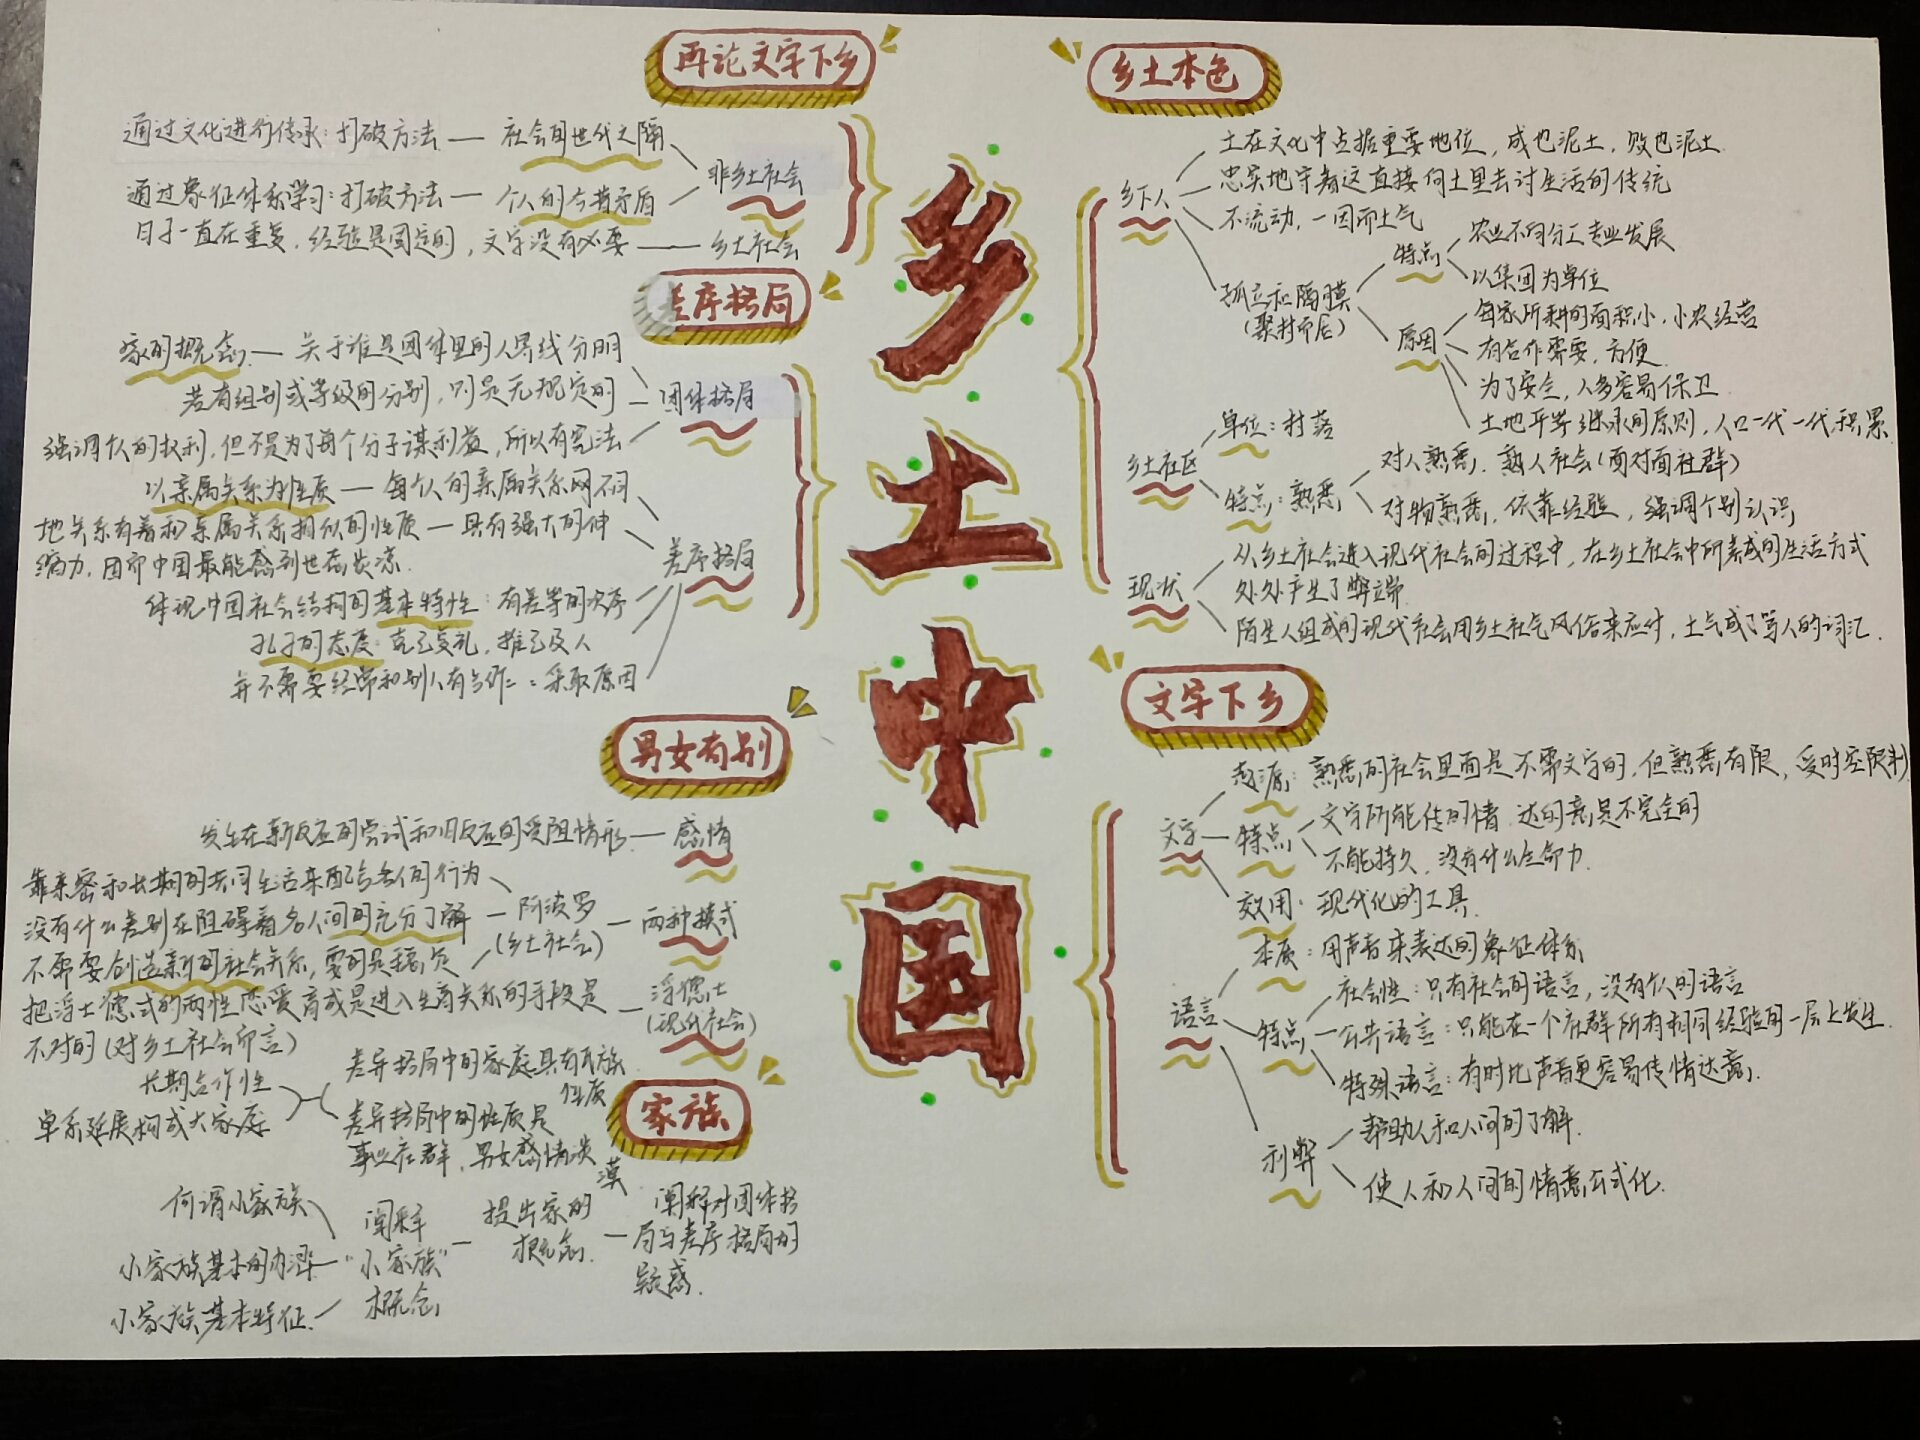 乡土中国
乡土本色
乡下人
土在文化中占据重要地位，成也泥土，败也泥土
忠实地守着这直接向土里去讨生活的传统
不流动，一因而土气
孤立和隔膜
（聚村而居）
特点
农业不同分工专业发展
以集团为单位
原因
每家所耕的面积小，小农经营
有合作需要，方便
为了安全，人多容易保卫
土地平等继承的原则，人口一代一代积累
乡土社区
单位：村落
特点：熟悉
对人熟悉，熟人社会（面对面社群）
对物熟悉，依靠经验，强调个别认识
现状
从乡土社会进入现代社会的过程中，在乡土社会中所养成的生活方式
处处产生了弊端
陌生人组成的现代社会用乡土社气风俗来应付，土气成了骂人的词汇．
文字下乡
文字
起源：熟悉的社会里面是不需文字的，但熟悉有限，受时空限制
特点
文字所能传的情 达的意是不完全的
不能持久，没有什么生命力
效用：现代化的工具
语言
本质：用声音来表达的象征体系
特点
社会性：只有社会的语言，没有个人的语言
公共语言：只能在一个社群所有相同经验的一层上发生．
特殊语言：有时比声音更容易传情达意．
利弊
帮助人和人间的了解．
使人和人间的情意公式化．
再论文字下乡
通过文化进行传承：打破方法 — 社会的世代之隔
非乡土社会
通过象征体系学习：打破方法 — 个人的今昔矛盾
日子一直在重复，经验是固定的，文字没有必要 — 乡土社会
差序格局
家的概念 — 关于谁是团体里的人界线分明
若有组别或等级的分别，则是先规定的 — 团体格局
强调个人的权利，但不是为了每个分子谋利益，所以有宪法
以亲属关系为性质 — 每个人的亲属关系网不同
地关系有着和亲属关系相似的性质 — 具有强大的伸
缩力，因而中国最能感到世态炎凉．
差序格局
体现中国社会结构的基本特性：有差等的次序
孔子的态度：克己复礼，推己及人
并不需要经常和别人有合作：采取原因
男女有别
发生在新反应的尝试和旧反应的受阻情形 — 感情
靠亲密和长期的共同生活来配合各人间行为
没有什么差别在阻碍着各人间的充分了解 — 阿波罗 — 两种模式
（乡土社会）
不需要创造新的社会关系，要的是稳定
把浮士德式的两性恋爱看成是进入生育关系的手段是 — 浮德士
不对的（对乡土社会而言）
（现代社会）
家族
长期合作性
单系延展构成大家庭
差异格局中的家庭具有氏族
性质
差异格局中的性质是
事业社群，男女感情淡
漠
何谓小家族
小家族基本的内涵
小家族基本特征．
阐释
“小家族”
概念
提出家的
概念．
阐释对团体格
局与差序格局的
疑惑．